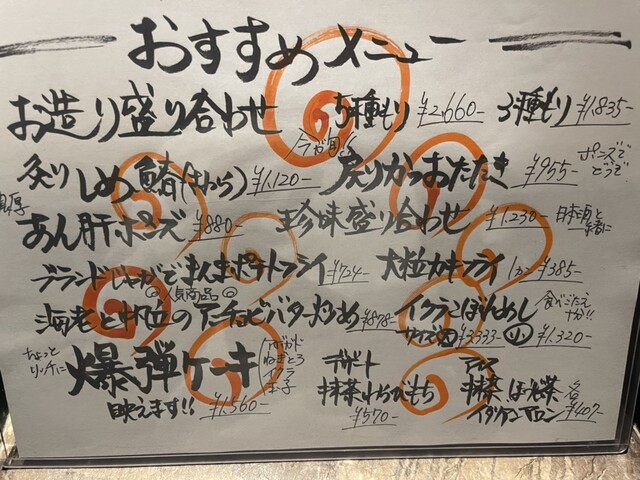 おすすめメニュー
お造り盛り合わせ 5種もり ¥2,660- 3種もり ¥1,835-
今が旬!!
炙りしめ鯖 ¥1,120- 戻りかつおたたき ¥955- ポンズでどうぞ。
あん肝ポンズ ¥880- 珍味盛り合わせ ¥1,230- 日本酒と一緒に
ブランドじゃがでまんまポテトフライ ¥724- 大粒カキフライ 1カン ¥385-
海老とのアンチョビバター炒め ¥878- イクラこぼれめし 食べごたえ
サイズ 大 ¥3,333- 小 ¥1,320-
ちょっとリッチに 爆弾ケーキ ねぎとろ イクラ 玉子
映えます!! ¥1,560-
デザート
抹茶わらびもち
¥570-
アイス
抹茶 ほうじ茶
イタリアンマロン 各¥407-